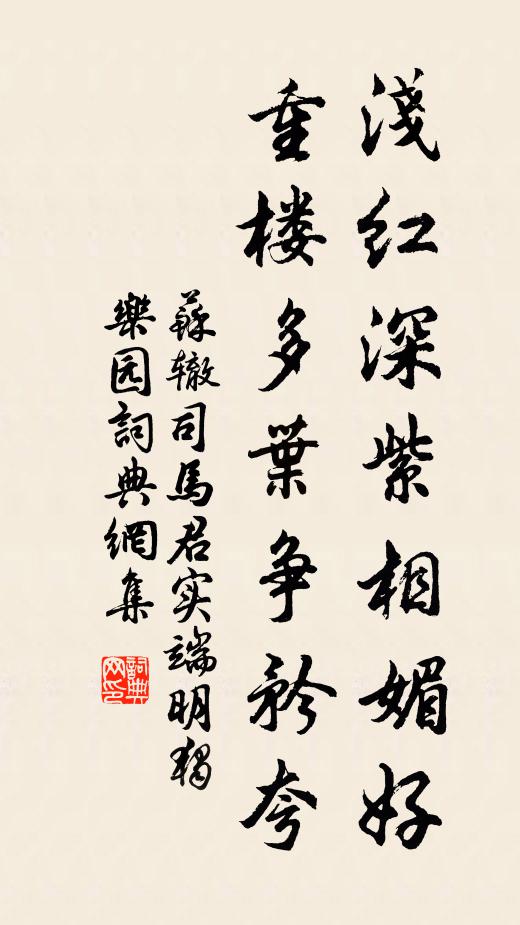 淺红深紫相媚好
重楼多葉争矜夸
蘇辙司馬君实端明獨
樂园詞典網集
詞典网印